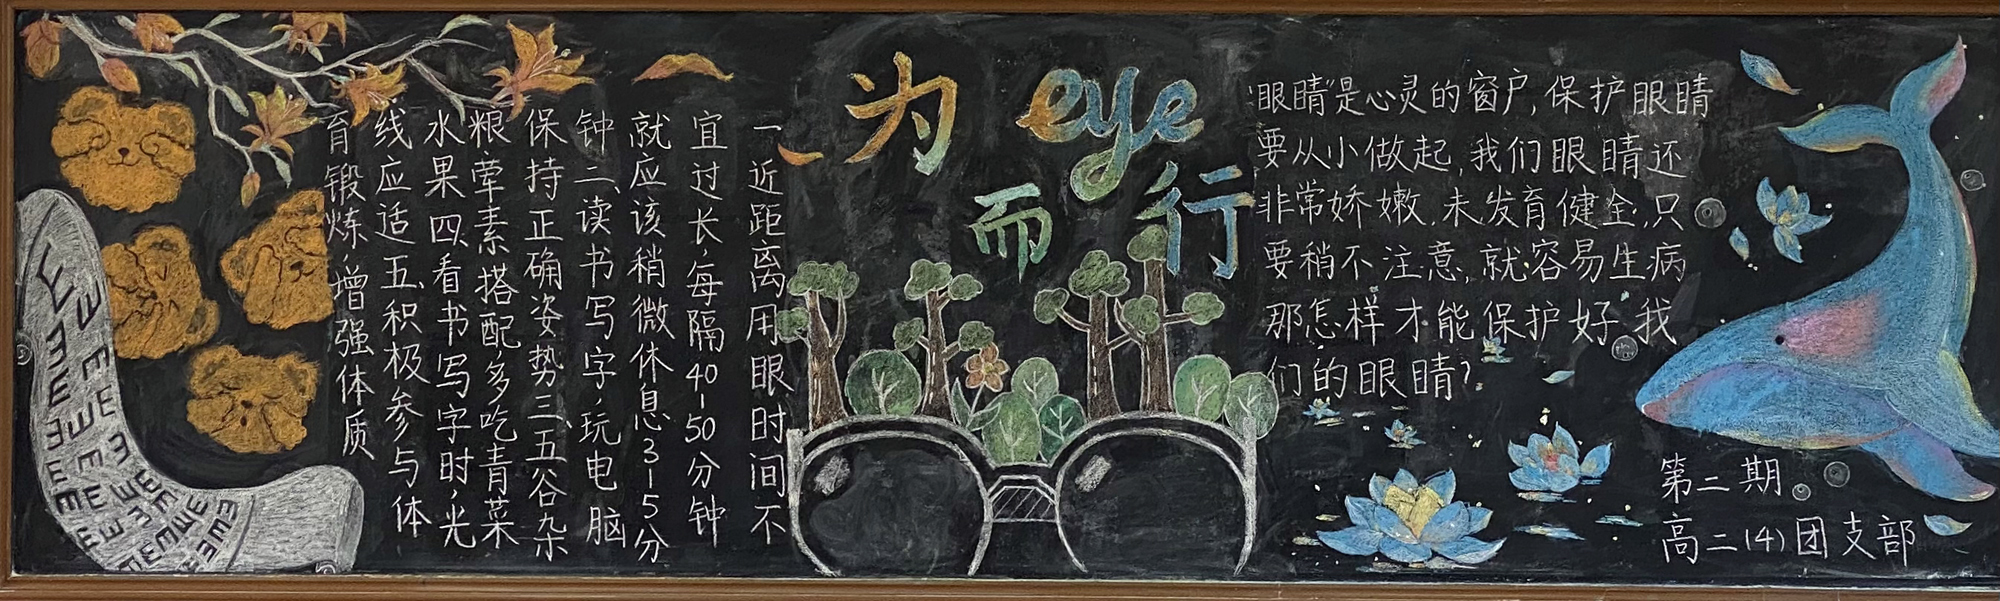 为eye
而行
“眼睛”是心灵的窗户,保护眼睛
要从小做起,我们眼睛还
非常娇嫩,未发育健全,只
要稍不注意,就容易生病
那怎样才能保护好我
们的眼睛?
一近距离用眼时间不
宜过长,每隔40-50分钟
就应该稍微休息3-5分
钟二、读书写字,玩电脑
保持正确姿势三、五谷杂
粮荤素搭配,多吃青菜
水果四、看书写字时,光
线应适五、积极参与体
育锻炼,增强体质
第二期
高二(4)团支部